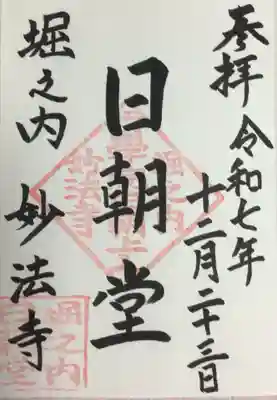 参拝 令和七年
十二月二十三日
日朝堂
堀之内 妙法寺
堀之内
妙法寺